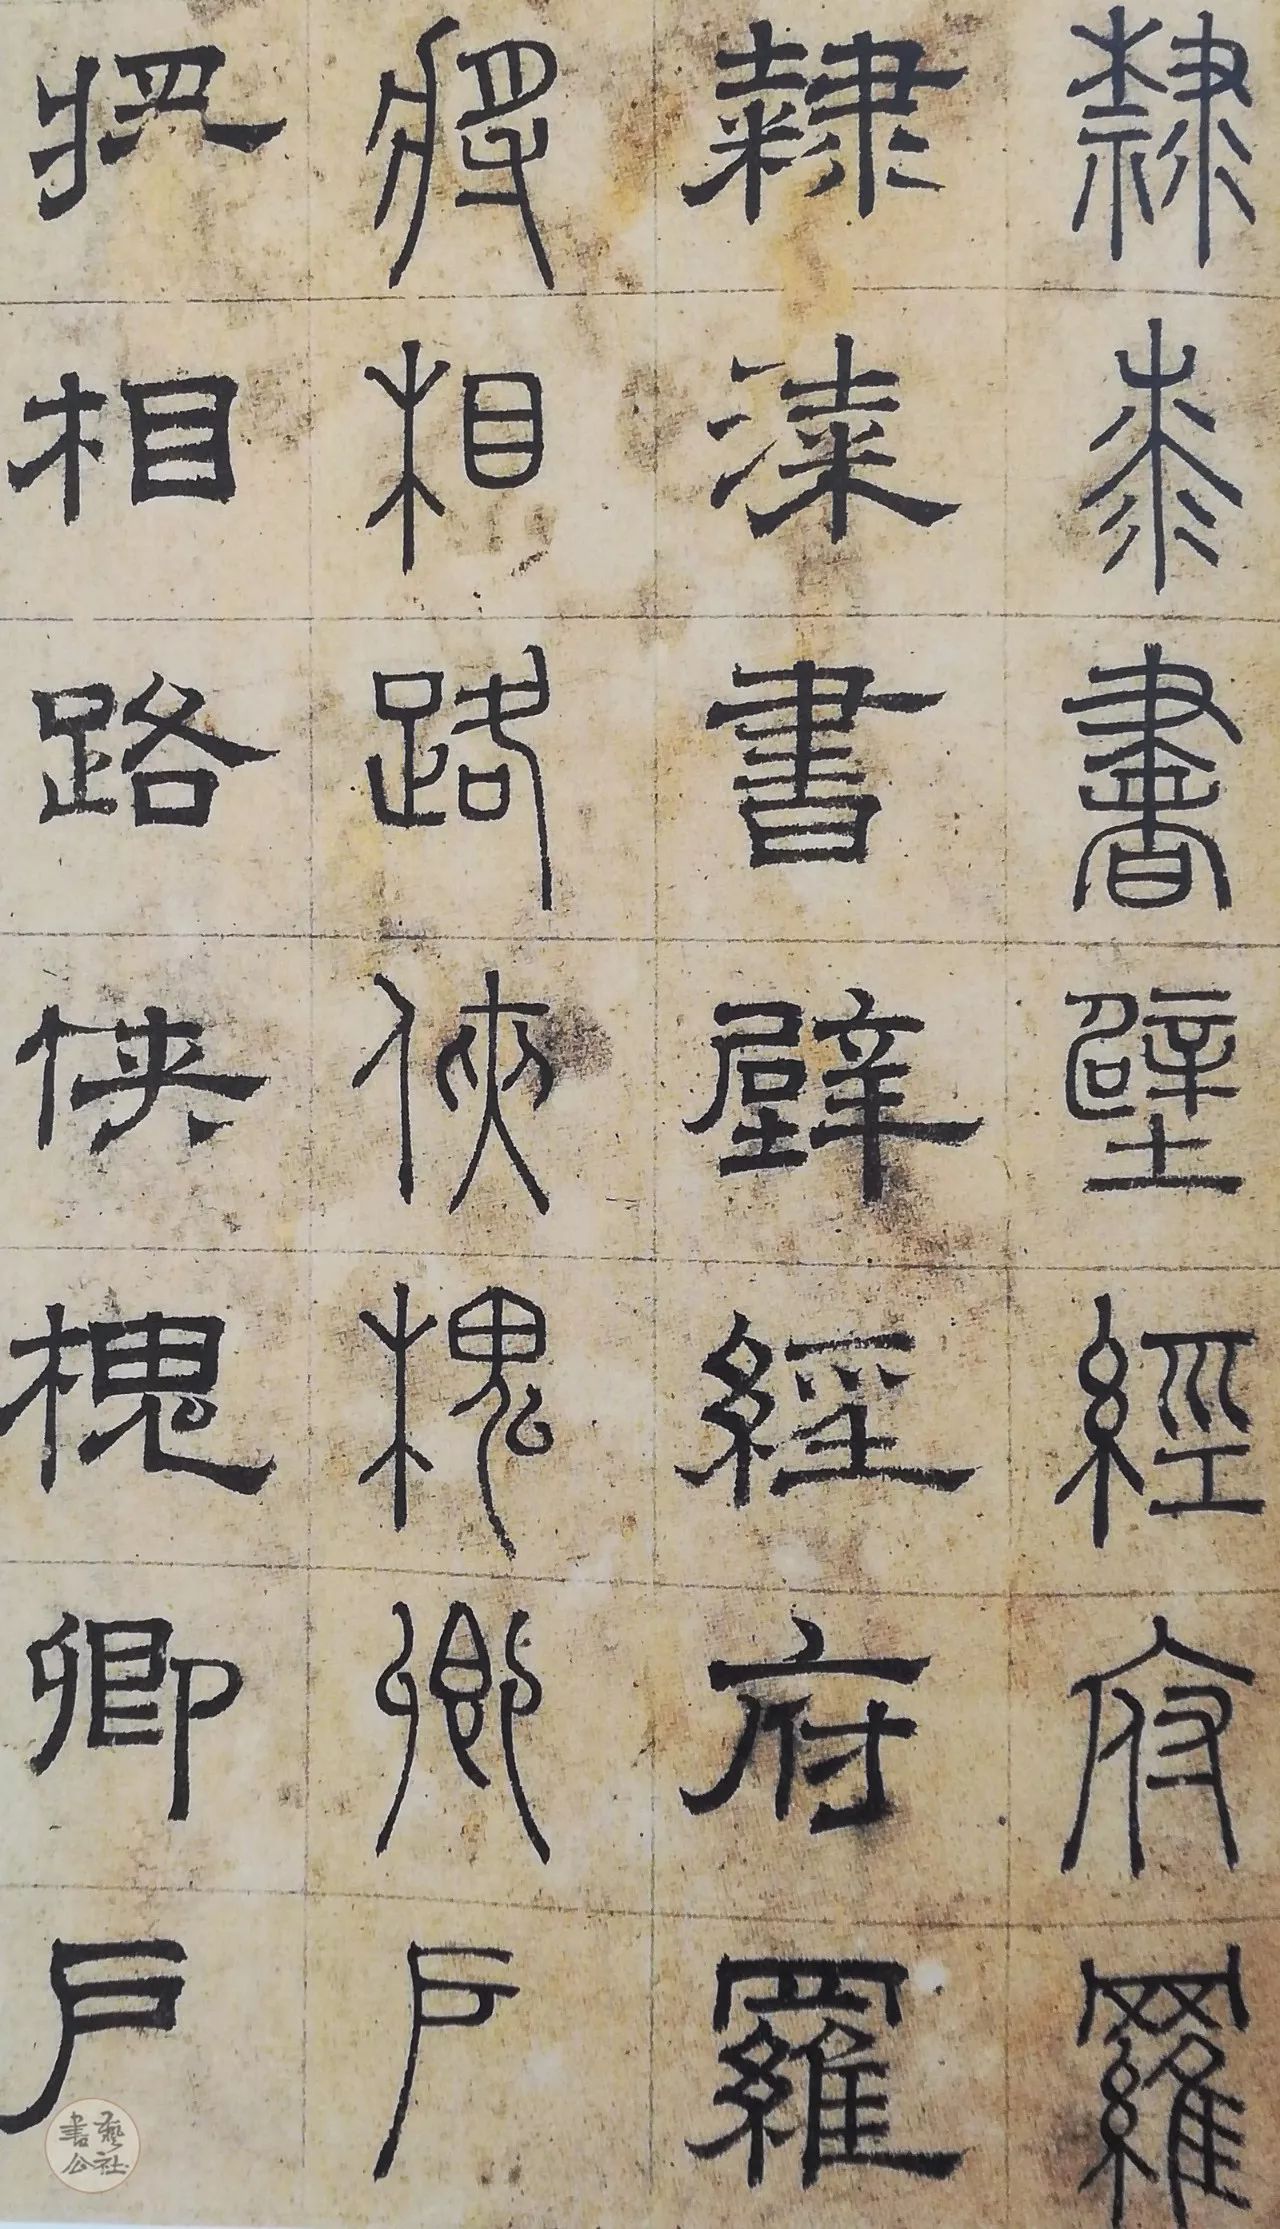 隸桼書壁經府羅
隸漆書壁經府羅
將相路俠槐卿戶
將相路俠槐卿戶
書藝公社